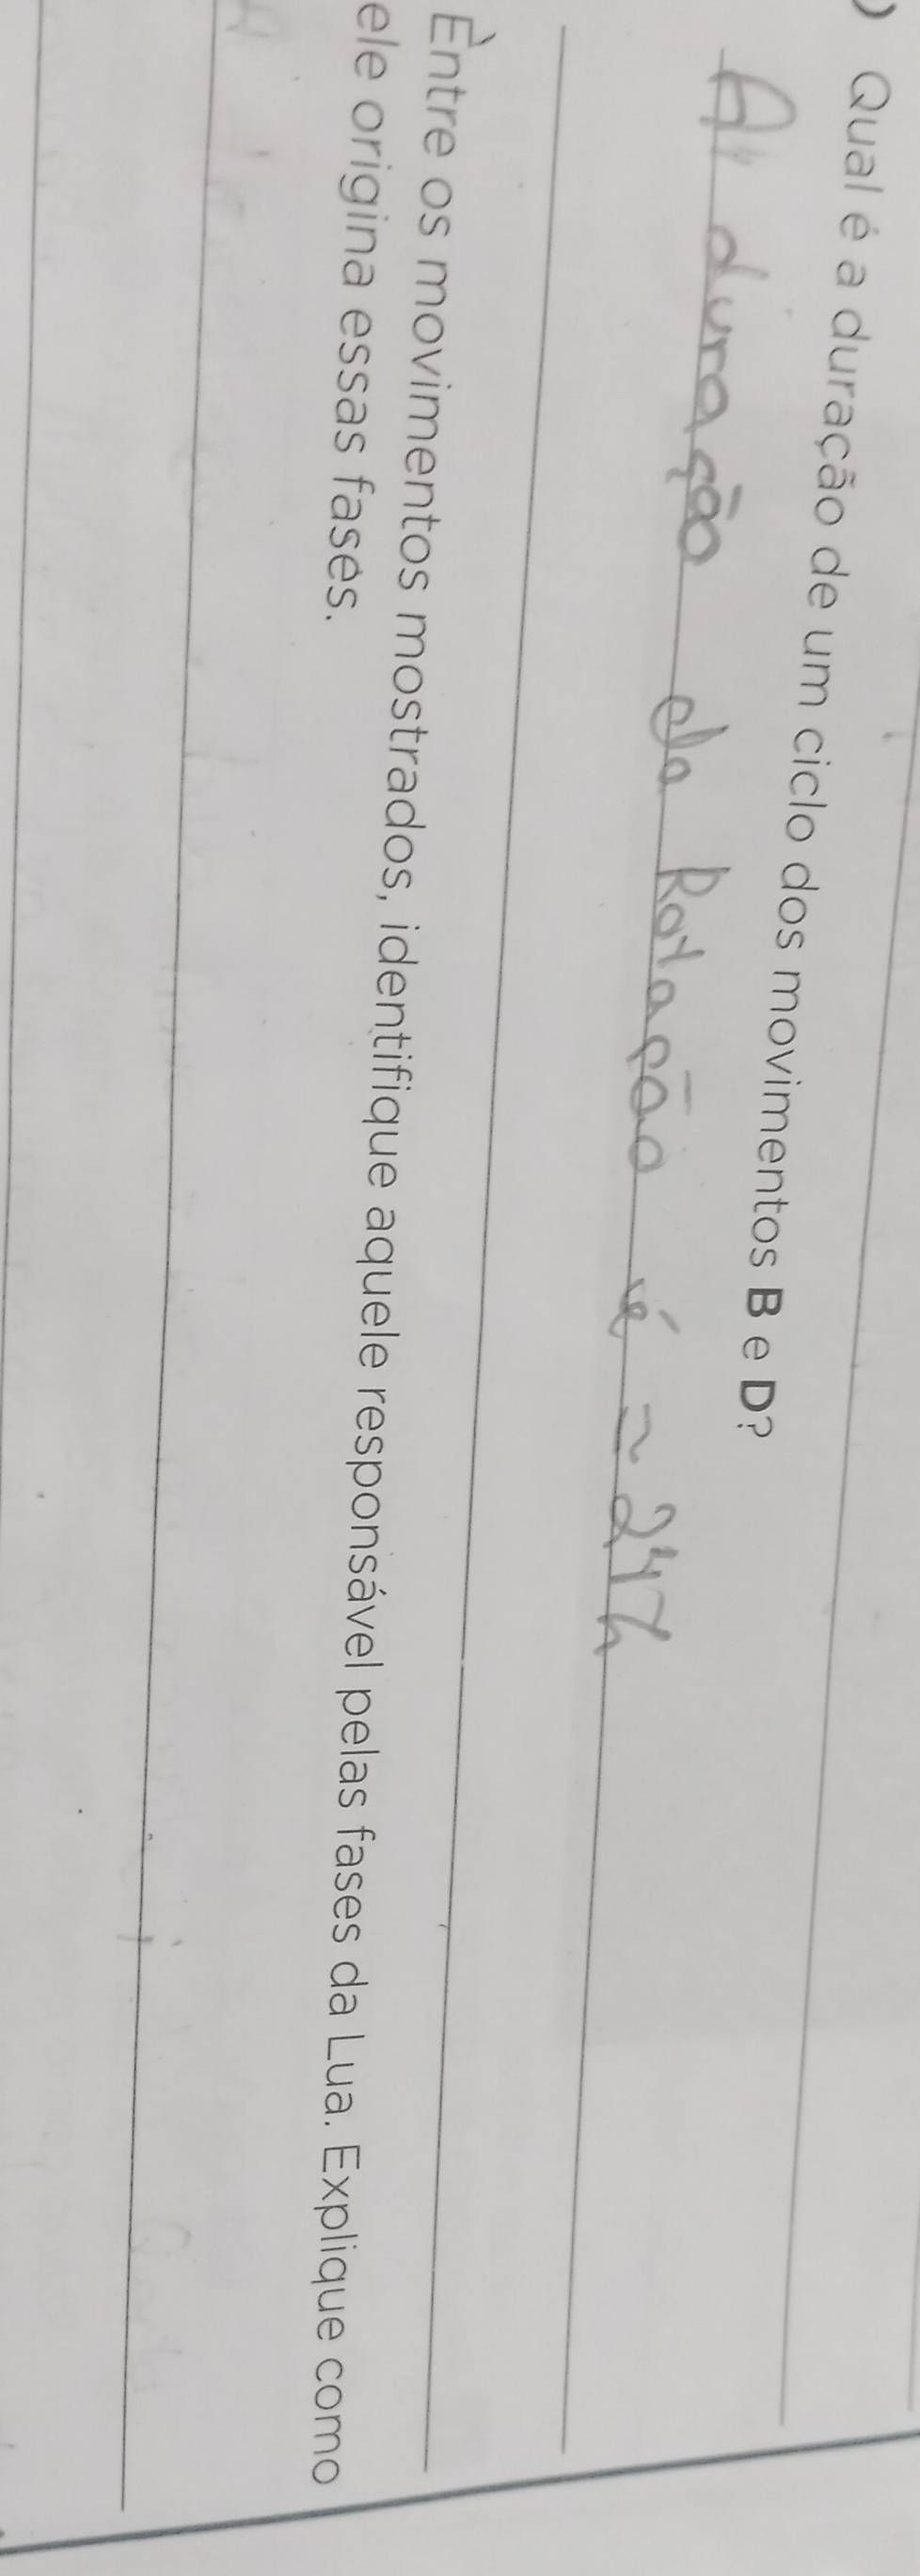 ) Qual é a duração de um ciclo dos movimentos B e D?
A duração da Rotação é ~ 24h
Entre os movimentos mostrados, identifique aquele responsável pelas fases da Lua. Explique como
ele origina essas fases.